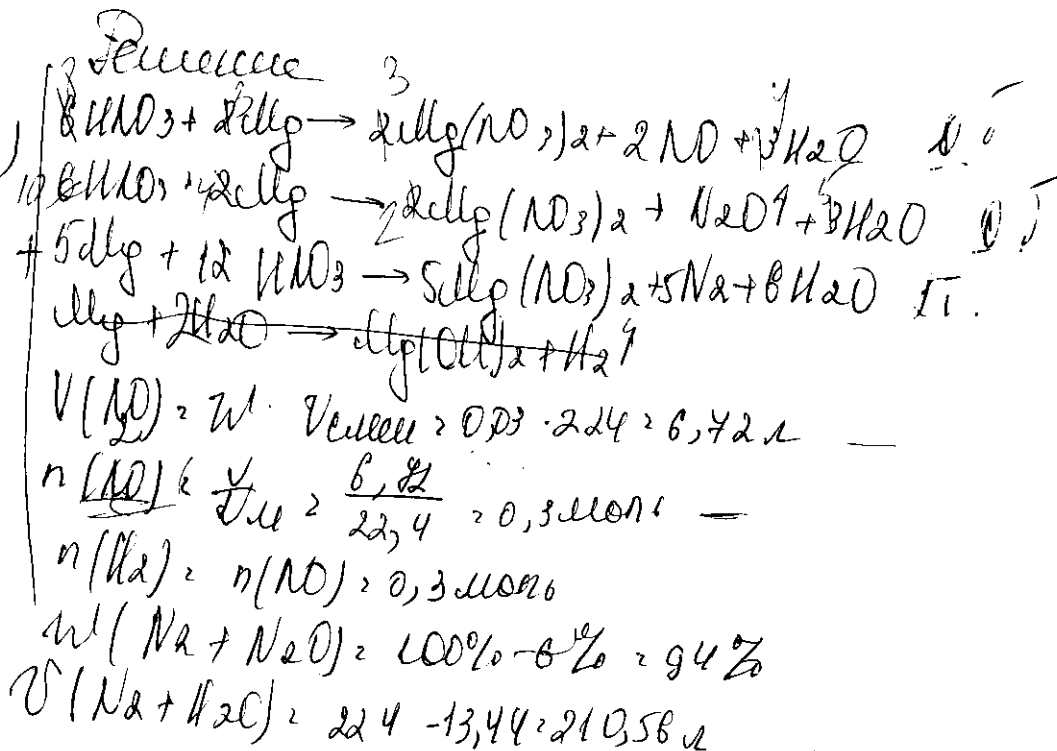 Решение
8HNO3 + 3Mg → 3Mg(NO3)2 + 2NO + 4H2O
10HNO3 + 4Mg → 4Mg(NO3)2 + N2O↑ + 5H2O
+ 5Mg + 12HNO3 → 5Mg(NO3)2 + 5N2 + 6H2O II.
Mg + 2H2O → Mg(OH)2 + H2↑
V(NO) = W · Vсмеси = 0,03 · 224 = 6,72 л —
n(NO) = V/Vм = 6,72/22,4 = 0,3 моль —
n(N2) = n(NO) = 0,3 моль
W(N2 + N2O) = 100% - 6% = 94%
V(N2 + N2O) = 224 - 13,44 = 210,56 л